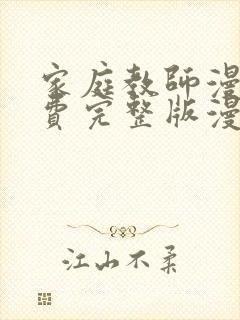 家庭教師漫
費完整版漫
江山不柔